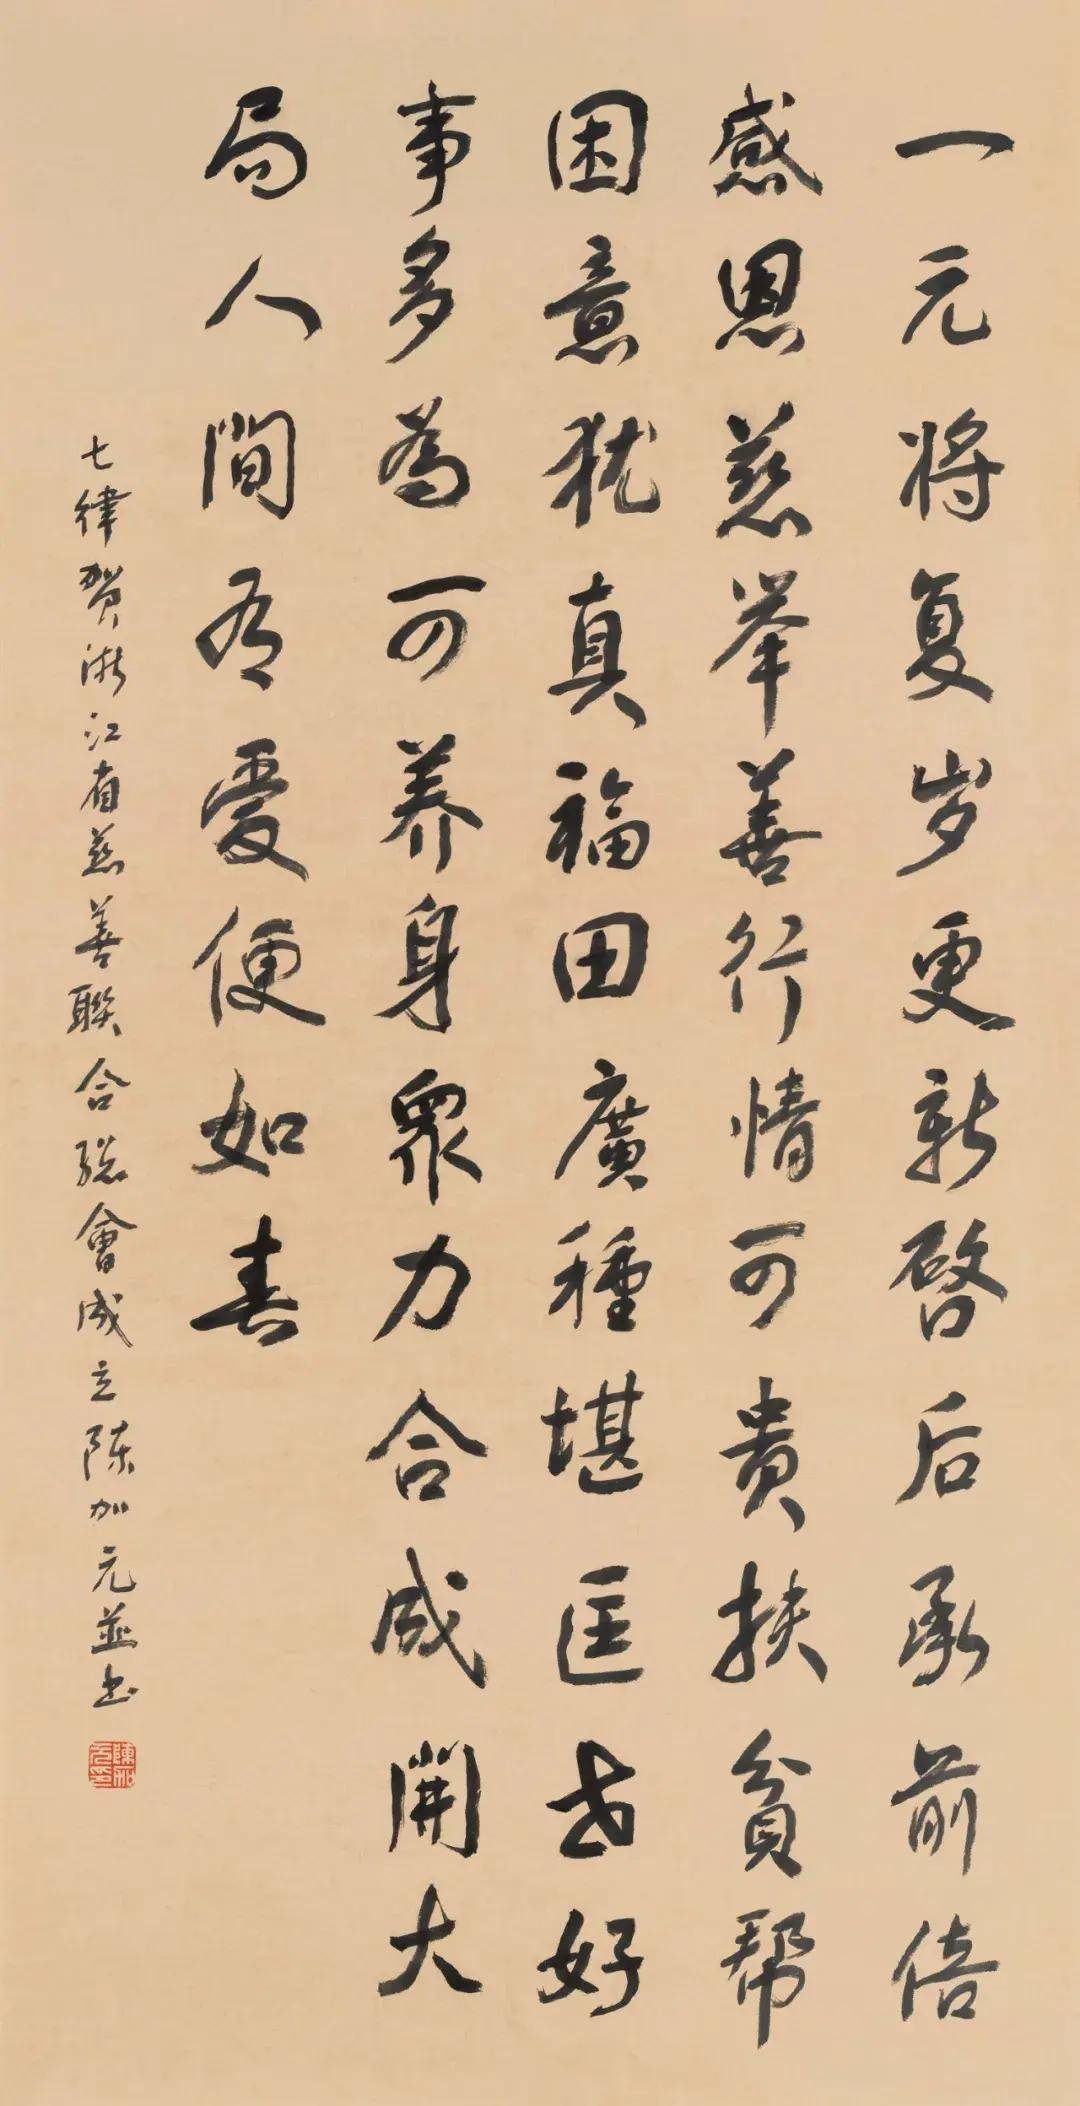 一元将复岁更新啓后承前倍
感恩慈举善行情可贵扶贫帮
困意犹真福田廣種堪匡世好
事多為可养身眾力合成開大
局人間有爱便如春
七律贺浙江省慈善聯合總會成立陈加元並书
陳加元印